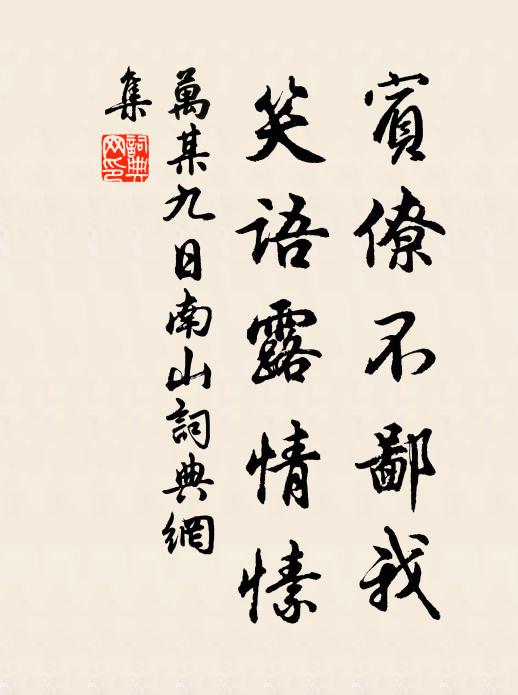 賓僚不鄙我
笑語露情愫
萬某九日南山詞典網
集
詞典網印